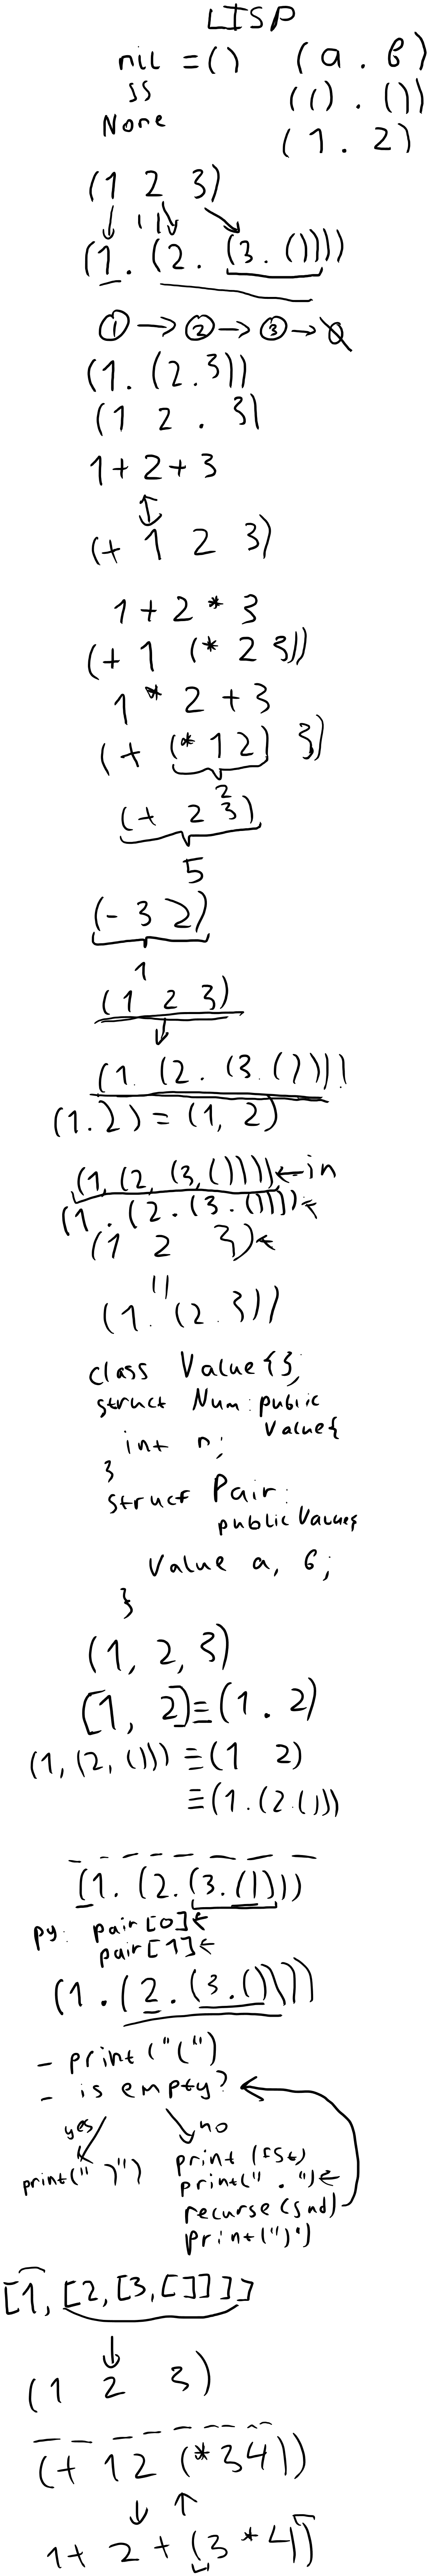 LISP
nil = () (a . b)
SS (() . ())
None (1 . 2)
(1 2 3)
(1. (2. (3. ())))
① → ② → ③ → 0
(1. (2.3))
(1 2 . 3)
1+2+3
(+ 1 2 3)
1 + 2 * 3
(+ 1 (* 2 3))
1 * 2 + 3
(+ (* 1 2) 3)
2
(+ 2 3)
5
(- 3 2)
1
(1 2 3)
(1. (2. (3. ())))
(1.2) = (1, 2)
(1, (2, (3, ()))) ← in
(1 . (2. (3. ()))) ←
(1 2 3) ←
(1. (2.3))
class Value {};
struct Num: public
Value {
int n;
}
struct Pair:
public Value {
Value a, b;
}
(1, 2, 3)
[1, 2] ≡ (1 . 2)
(1, (2, ())) ≡ (1 2)
≡ (1. (2. ()))
(1. (2. (3. ())))
py: pair[0] ←
pair[1] ←
(1 . (2. (3. ())))
- print("(")
- is empty?
yes no
print(")") print(fst)
print(" . ") ←
recurse(snd)
print(")")
[1, [2, [3, []]]]
(1 2 3)
(+ 1 2 (* 3 4))
1 + 2 + (3 * 4)